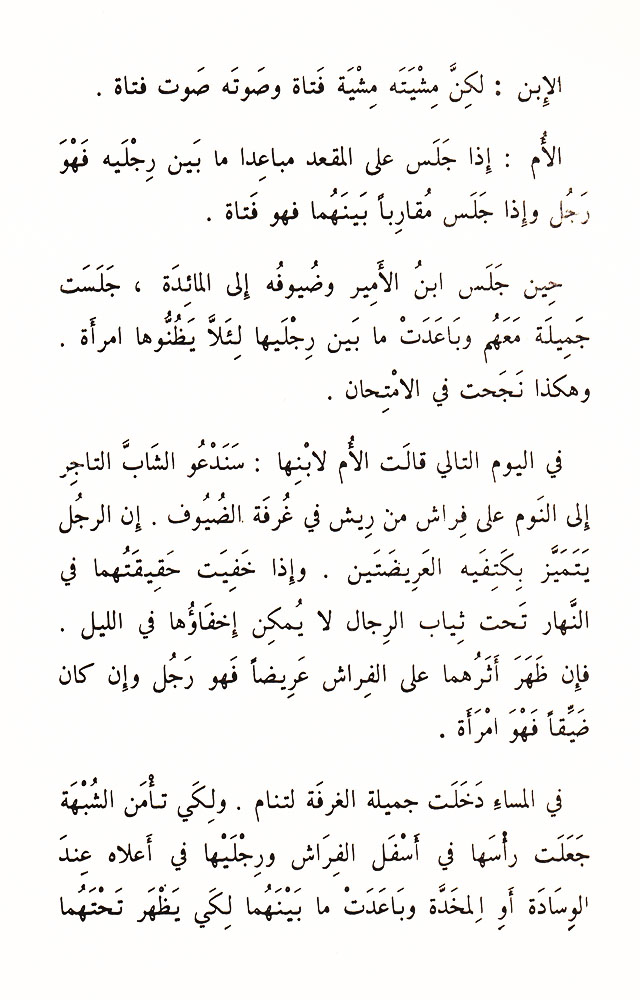 الإِبن : لكِنَّ مِشْيَتَه مِشْيَة فَتاة وصَوتَه صَوت فتاة .
الأُم : إِذا جَلَس على المقعد مباعِدا ما بَين رِجْلَيه فَهْوَ
رَجُل وإِذا جَلَس مُقارِباً بَينَهُما فهو فَتاة .
حِين جَلَس ابنُ الأَمِير وضُيوفُه إِلى المائِدَة ، جَلَسَت
جَمِيلَة مَعَهُم وبَاعَدَتْ ما بَين رِجْلَيها لِئَلاَّ يَظُنُّوها امرأَة .
وهكذا نَجَحت في الامْتِحان .
في اليوم التالي قالَت الأُم لابْنِها : سَنَدْعُو الشَابَّ التاجِر
إِلى النَوم على فِراش من رِيش في غُرفَة الضُيُوف . إِن الرجُل
يَتَمَيَّز بِكَتِفَيه العَرِيضَتَين . وإِذا خَفِيَت حَقِيقَتُهما في
النَّهار تَحت ثِياب الرِجال لا يُمكِن إِخفَاؤُها في الليل .
فإِن ظَهَرَ أَثَرُهما على الفِراش عَرِيضاً فَهو رَجُل وإِن كان
ضَيِّقاً فَهْوَ امْرَأَة .
في المساءِ دَخَلَت جميلة الغرفَة لتنام . ولِكَي تأْمَن الشُبْهَة
جَعَلَت رأْسَها في أَسْفَل الفِرَاش ورِجْلَيْها في أَعلاه عِندَ
الوِسَادَة أَوِ المخَدَّة وبَاعَدَتْ ما بَيْنَهُما لِكَي يَظْهَر تَحْتَهُما